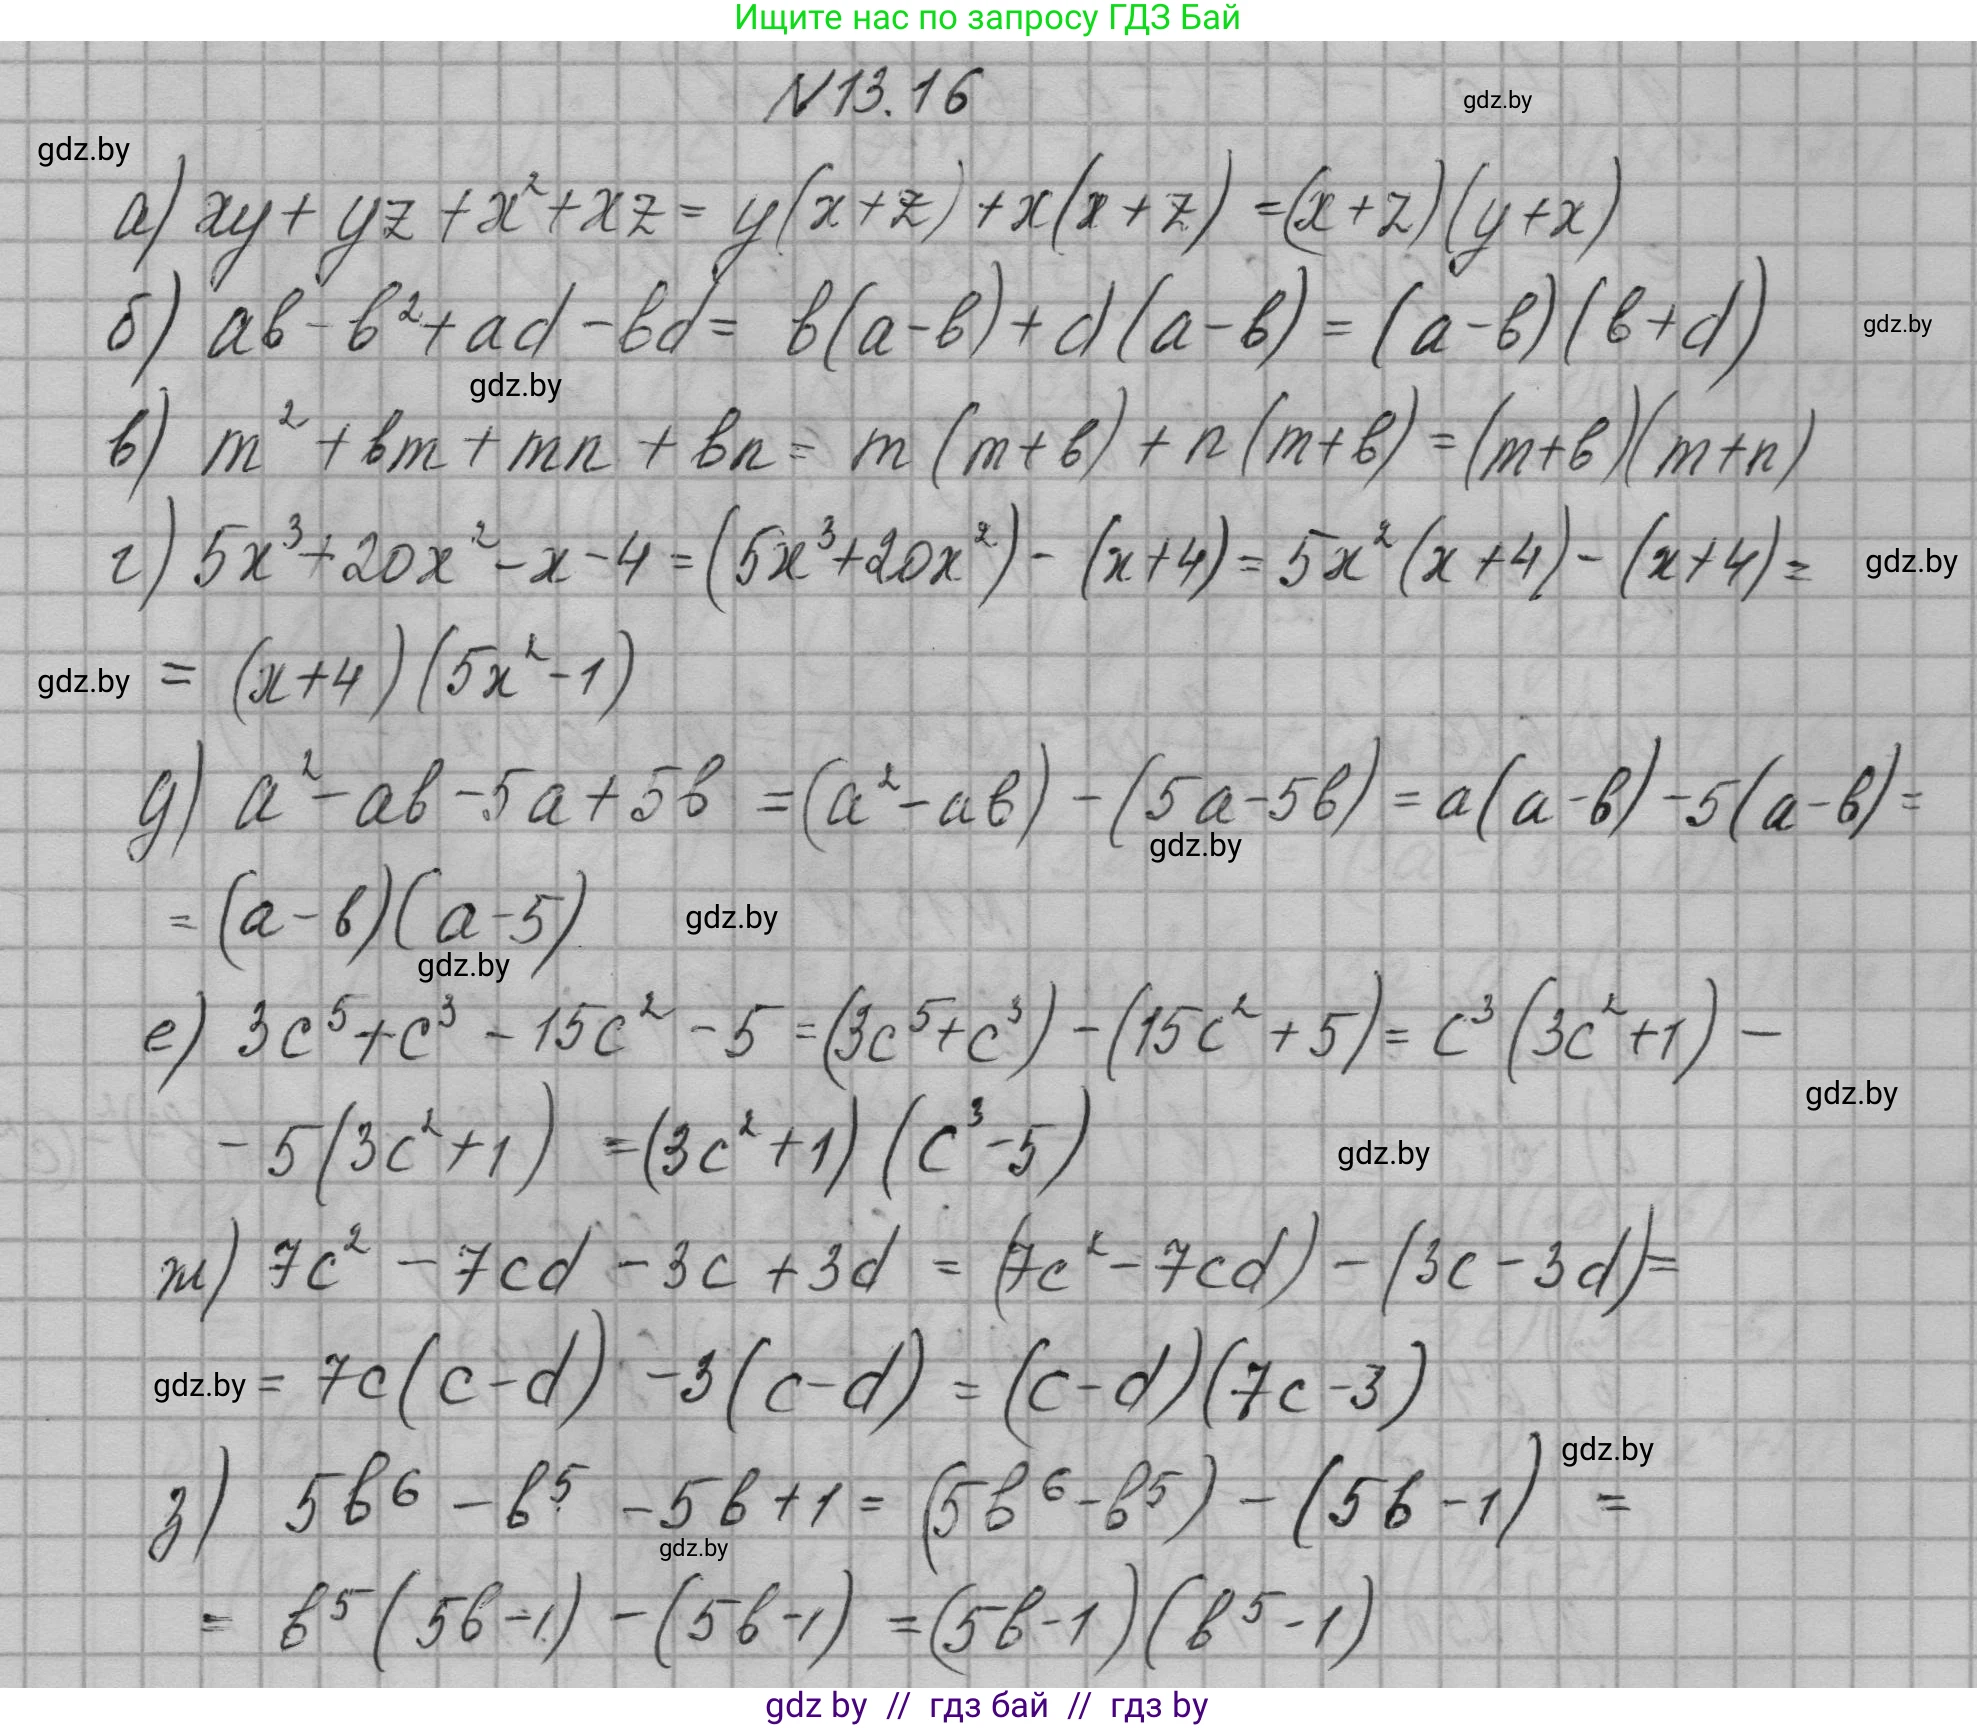 Ищите нас по запросу ГДЗ Бай
N13.16
gdz.by
gdz.by
а) xy + yz + x² + xz = y(x+z) + x(x+z) = (x+z)(y+x)
б) ab - b² + ad - bd = b(a-b) + d(a-b) = (a-b)(b+d)
gdz.by
gdz.by
в) m² + bm + mn + bn = m(m+b) + n(m+b) = (m+b)(m+n)
г) 5x³ + 20x² - x - 4 = (5x³ + 20x²) - (x+4) = 5x²(x+4) - (x+4) =
gdz.by
gdz.by
= (x+4)(5x² - 1)
д) a² - ab - 5a + 5b = (a² - ab) - (5a - 5b) = a(a-b) - 5(a-b) =
gdz.by
= (a-b)(a-5)
gdz.by
gdz.by
е) 3c⁵ + c³ - 15c² - 5 = (3c⁵ + c³) - (15c² + 5) = c³(3c² + 1) -
gdz.by
- 5(3c² + 1) = (3c² + 1)(c³ - 5)
gdz.by
ж) 7c² - 7cd - 3c + 3d = (7c² - 7cd) - (3c - 3d) =
gdz.by
= 7c(c-d) - 3(c-d) = (c-d)(7c-3)
gdz.by
з) 5b⁶ - b⁵ - 5b + 1 = (5b⁶ - b⁵) - (5b - 1) =
gdz.by
= b⁵(5b-1) - (5b-1) = (5b-1)(b⁵-1)
gdz by // гдз бай // гдз by